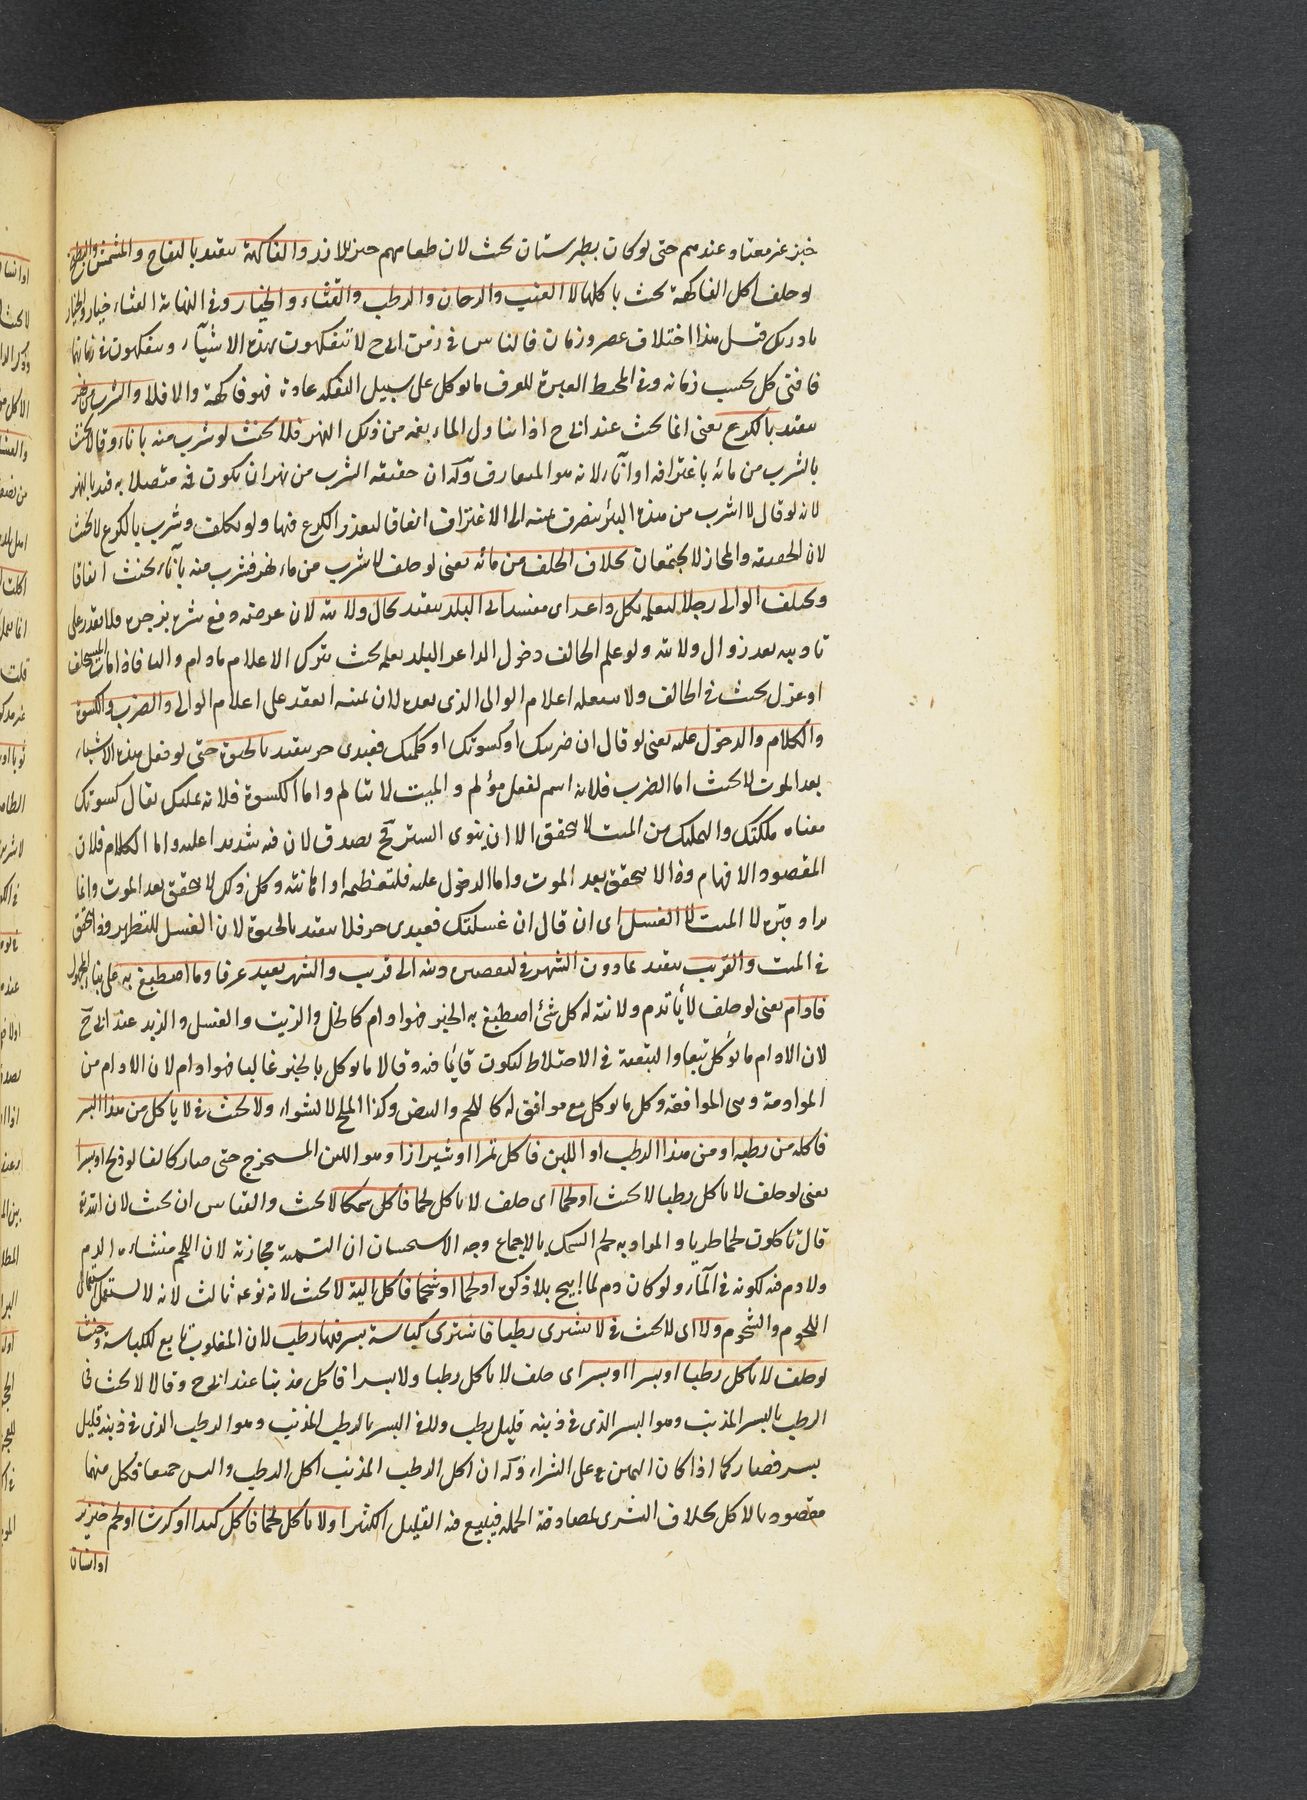 خبز غير معتاد عندهم حتى لو كان بطبرستان يحنث لان طعامهم خبز الارز والفاكهة يتقيد بالتفاح والمشمش والبطيخ
لو حلف لا ياكل الفاكهة يحنث باكلها لا العنب والرمان والرطب والقثاء والخيار وفي النهاية القثاء خيار والخيار
بادرنك قيل هذا اختلاف عصر وزمان فالناس في زمن ابي ح لا يتفكهون بهذه الاشياء ويتفكهون في زمانهما
فافتى كل بحسب زمانه وفي المحيط العبرة للعرف ما يوكل على سبيل التفكه عادة فهو فاكهة والا فلا والشرب من نهر
يتقيد بالكرع يعنى انما يحنث عند ابي ح اذا تناول الماء بفمه من ذلك النهر فلا يحنث لو شرب منه باناء وقالا يحنث
بالشرب من مائه باغترافه او اناء لانه هو المتعارف وله ان حقيقة الشرب من نهر ان يكون فمه متصلا به قيد بالنهر
لانه لو قال لا اشرب من هذه البئر ينصرف يمينه الى الاغتراف اتفاقا لتعذر الكرع فيها ولو تكلف وشرب بالكرع لا يحنث
لان الحقيقة والمجاز لا يجتمعان بخلاف الحلف من مائه يعنى لو حلف لا يشرب من ماء نهر فشرب منه باناء يحنث اتفاقا
وتحليف الوالى رجلا ليعلمه بكل داعر اى مفسد اتى البلد يتقيد بحال ولايته لان غرضه دفع شره بزجره فلا يقدر على
تاديبه بعد زوال ولايته ولو علم الحالف دخول الداعر البلد ولم يعلمه يحنث بترك الاعلام مادام واليا فاذا مات المستحلف
او عزل يحنث في الحالف ولا ينفعه اعلام الوالى الذى بعده لان يمينه انعقد على اعلام الوالى والضرب والكسوة
والكلام والدخول عليه يعنى لو قال ان ضربتك او كسوتك او كلمتك فعبدى حر يتقيد بالحيوة حتى لو فعل هذه الاشياء
بعد الموت لا يحنث اما الضرب فلانه اسم لفعل مؤلم و الميت لا يتالم واما الكسوة فلانه تمليك يقال كسوتك
معناه ملكتك والتمليك من الميت لا يتحقق الا ان ينوى الستر فح يصدق لان فيه تشديدا عليه واما الكلام فلان
المقصود الافهام وذا لا يتحقق بعد الموت واما الدخول عليه فلتعظيمه او اهانته وكل ذلك لا يتحقق بعد الموت وانما
يزار قبره لا الميت لا الغسل اى ان قال ان غسلتك فعبدى حر فلا يتقيد بالحيوة لان الغسل للتطهير وذا يتحقق
في الميت والقريب يتقيد بما دون الشهر في ليقضين دينه الى قريب والشهر بعيد عرفا وما اصطبغ به على بناء المجهول
فادام يعنى لو حلف لا ياتدم ولا نية له كل شئ اصطبغ به الخبز فهو ادام كالخل والزيت والعسل والزبد عند ابي ح
لان الادام ما يوكل تبعا والتبعية في الاختلاط ليكون قائما فيه وقالا ما يوكل بالخبز غالبا فهو ادام لان الادام من
المداومة وهى الموافقة وكل ما يوكل مع موافق له كاللحم والبيض وكذا الملح لا الشواء ولا يحنث في لا ياكل من هذا البسر
فاكله من رطبه او من هذا الرطب او اللبن فاكل تمرا او شيرازا وهو اللبن المستخرج حتى صار كالفالوذج او بسرا
يعنى لو حلف لا ياكل رطبا لا يحنث او لحما اى حلف لا ياكل لحما فاكل سمكا لا يحنث والقياس ان يحنث لان الله تع
قال تاكلون لحما طريا والمراد به لحم السمك بالاجماع وجه الاستحسان ان التسمية مجازية لان اللحم منشاءه الدم
ولا دم فيه لكونه في الماء ولو كان دم لما ابيح بلا ذكوة او لحما او شحما فاكل الية لا يحنث لانه نوعه ثالث لانه لا يستعمل استعمال
اللحوم والشحوم ولا اى لا يحنث في لا يشترى رطبا فاشترى كباسة بسر فيها رطب لان المغلوب تابع للكباسة وحنث
لو حلف لا ياكل رطبا او بسرا او بسرا اى حلف لا ياكل رطبا ولا بسرا فاكل مذنبا عند ابي ح وقالا لا يحنث في
الرطب بالبسر المذنب وهو البسر الذى في ذنبه قليل رطب ولا في البسر بالرطب المذنب وهو الرطب الذى في ذنبه قليل
بسر فصار كما اذا كان اليمين على الشراء وله ان اكل الرطب المذنب اكل الرطب والبسر جميعا فكل منهما
مقصود بالاكل بخلاف الشرى لمصادفته الجملة فيتبع فيه القليل الكثير او لا ياكل لحما فاكل كبدا او كرشا او لحم خنزير
او انسان